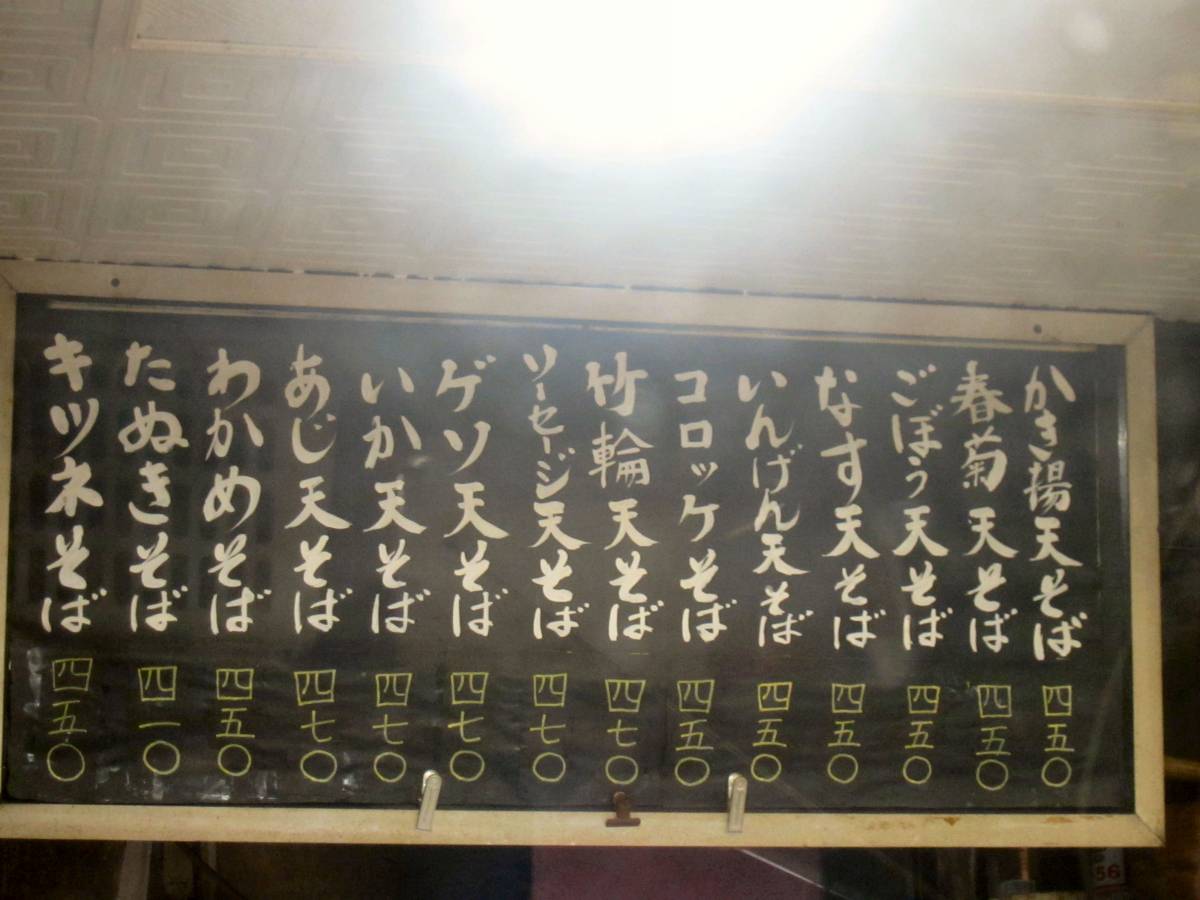 かき揚天そば 四五〇
春菊天そば 四五〇
ごぼう天そば 四五〇
なす天そば 四五〇
いんげん天そば 四五〇
コロッケそば 四五〇
竹輪天そば 四七〇
ソーセージ天そば 四七〇
ゲソ天そば 四七〇
いか天そば 四七〇
あじ天そば 四七〇
わかめそば 四五〇
たぬきそば 四一〇
キツネそば 四五〇
56